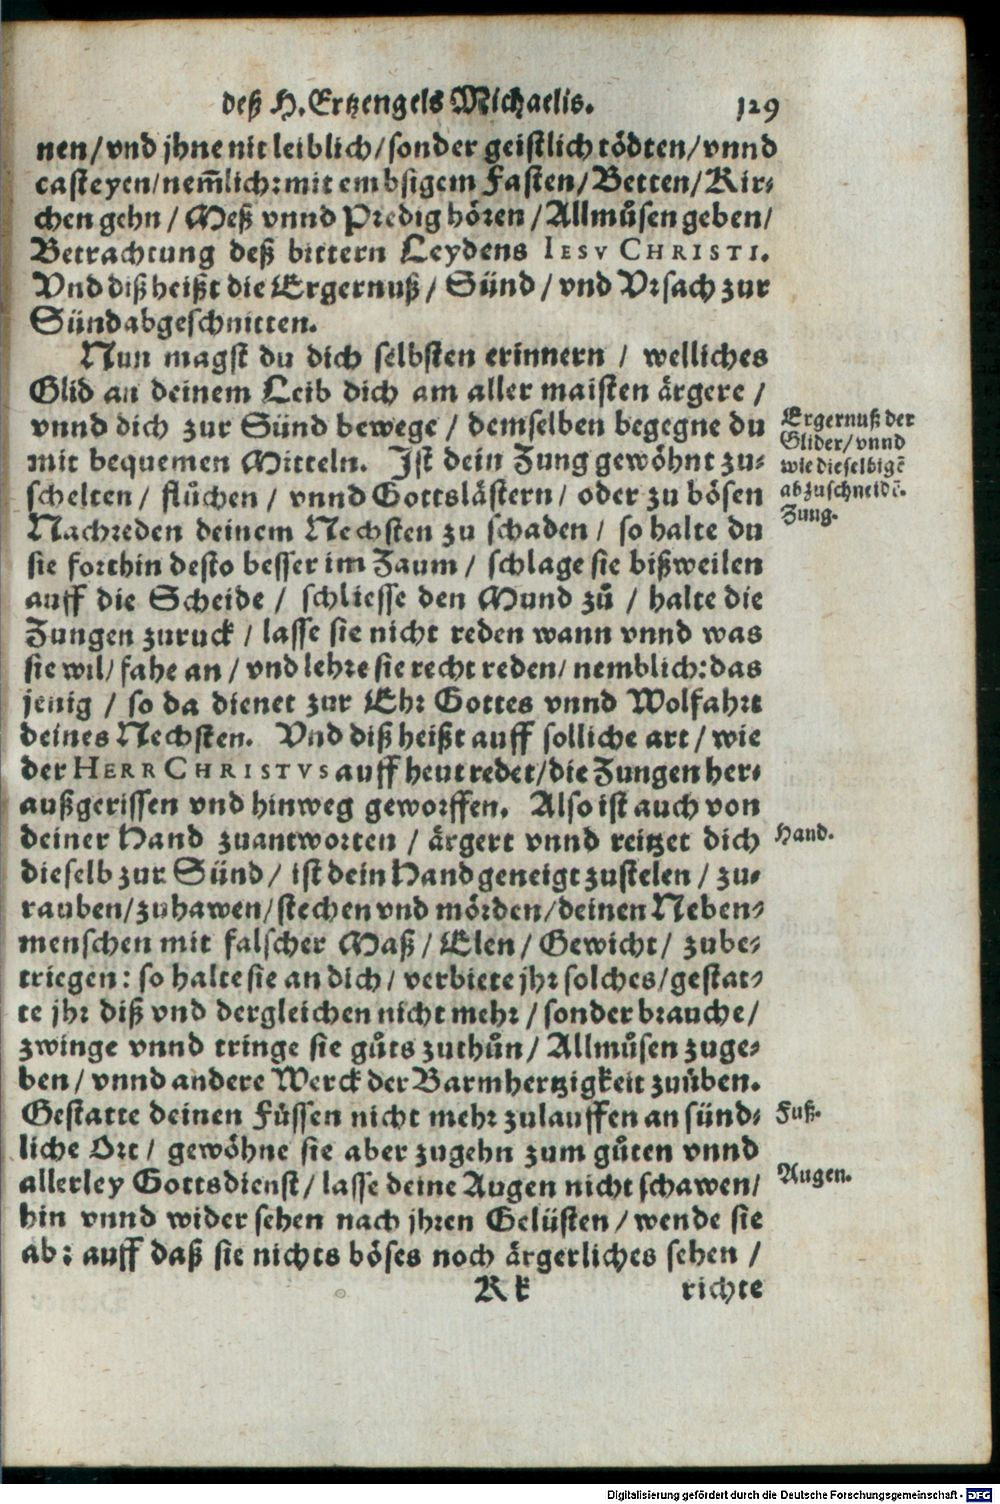 deß H. Ertzengels Michaelis. 129
nen/ vnd jhne nit leiblich/ sonder geistlich tödten/ vnnd
casteyen/ nem̃lich: mit embsigem Fasten/ Betten/ Kir-
chen gehn / Meß vnnd Predig hören / Allmůsen geben/
Betrachtung deß bittern Leydens IESV CHRISTI.
Vnd diß heißt die Ergernuß / Sünd / vnd Vrsach zur
Sünd abgeschnitten.
Nun magst du dich selbsten erinnern / welliches
Glid an deinem Leib dich am aller maisten ärgere /
vnnd dich zur Sünd bewege / demselben begegne du
mit bequemen Mitteln. Ist dein Zung gewöhnt zu-
schelten / flůchen / vnnd Gottslästern / oder zu bösen
Nachreden deinem Nechsten zu schaden / so halte du
sie forthin desto besser im Zaum / schlage sie bißweilen
auff die Scheide / schliesse den Mund zů / halte die
Zungen zuruck / lasse sie nicht reden wann vnnd was
sie wil/ fahe an / vnd lehre sie recht reden/ nemblich: das
jenig / so da dienet zur Ehr Gottes vnnd Wolfahrt
deines Nechsten. Vnd diß heißt auff solliche art / wie
der HERR CHRISTVS auff heut redet/ die Zungen her-
außgerissen vnd hinweg geworffen. Also ist auch von
deiner Hand zuantworten / ärgert vnnd reitzet dich
dieselb zur Sünd / ist dein Hand geneigt zustelen / zu-
rauben/ zuhawen/ stechen vnd mörden/ deinen Neben-
menschen mit falscher Maß / Elen / Gewicht / zube-
triegen: so halte sie an dich / verbiete jhr solches/ gestat-
te jhr diß vnd dergleichen nicht mehr / sonder brauche/
zwinge vnnd tringe sie gůts zuthůn / Allmůsen zuge-
ben / vnnd andere Werck der Barmhertzigkeit zuüben.
Gestatte deinen Füssen nicht mehr zulauffen an sünd-
liche Ort / gewöhne sie aber zugehn zum gůten vnnd
allerley Gottsdienst / lasse deine Augen nicht schawen/
hin vnnd wider sehen nach jhren Gelüsten / wende sie
ab: auff daß sie nichts böses noch ärgerliches sehen /
Kk richte
Ergernuß der
Glider/ vnnd
wie dieselbigẽ
abzuschneidẽ.
Zung.
Hand.
Fuß.
Augen.
Digitalisierung gefördert durch die Deutsche Forschungsgemeinschaft - DFG